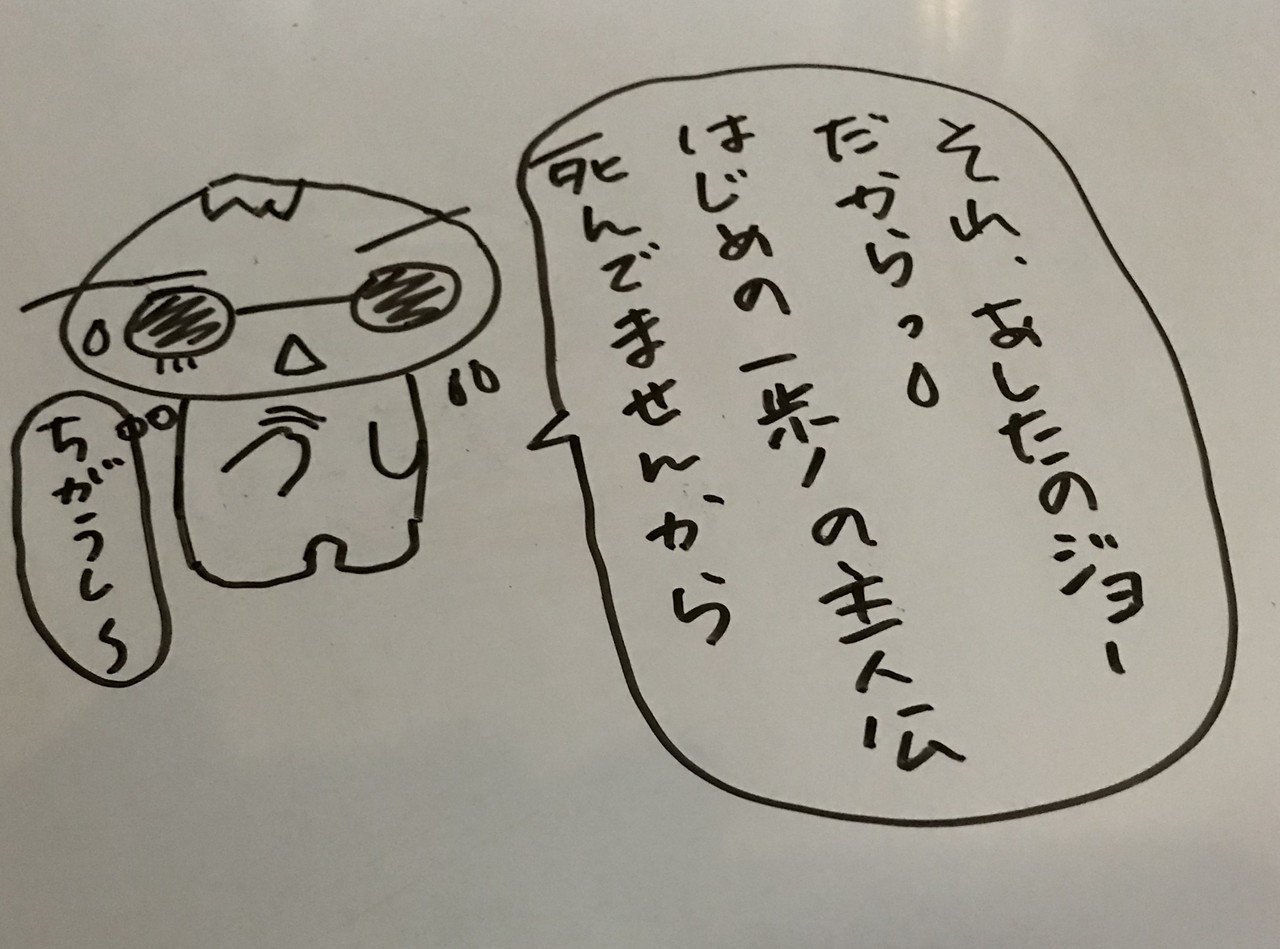 それ、あしたのジョー
だからっ。
はじめの一歩ノの主人伝
死んでませんから
ちがうし〜